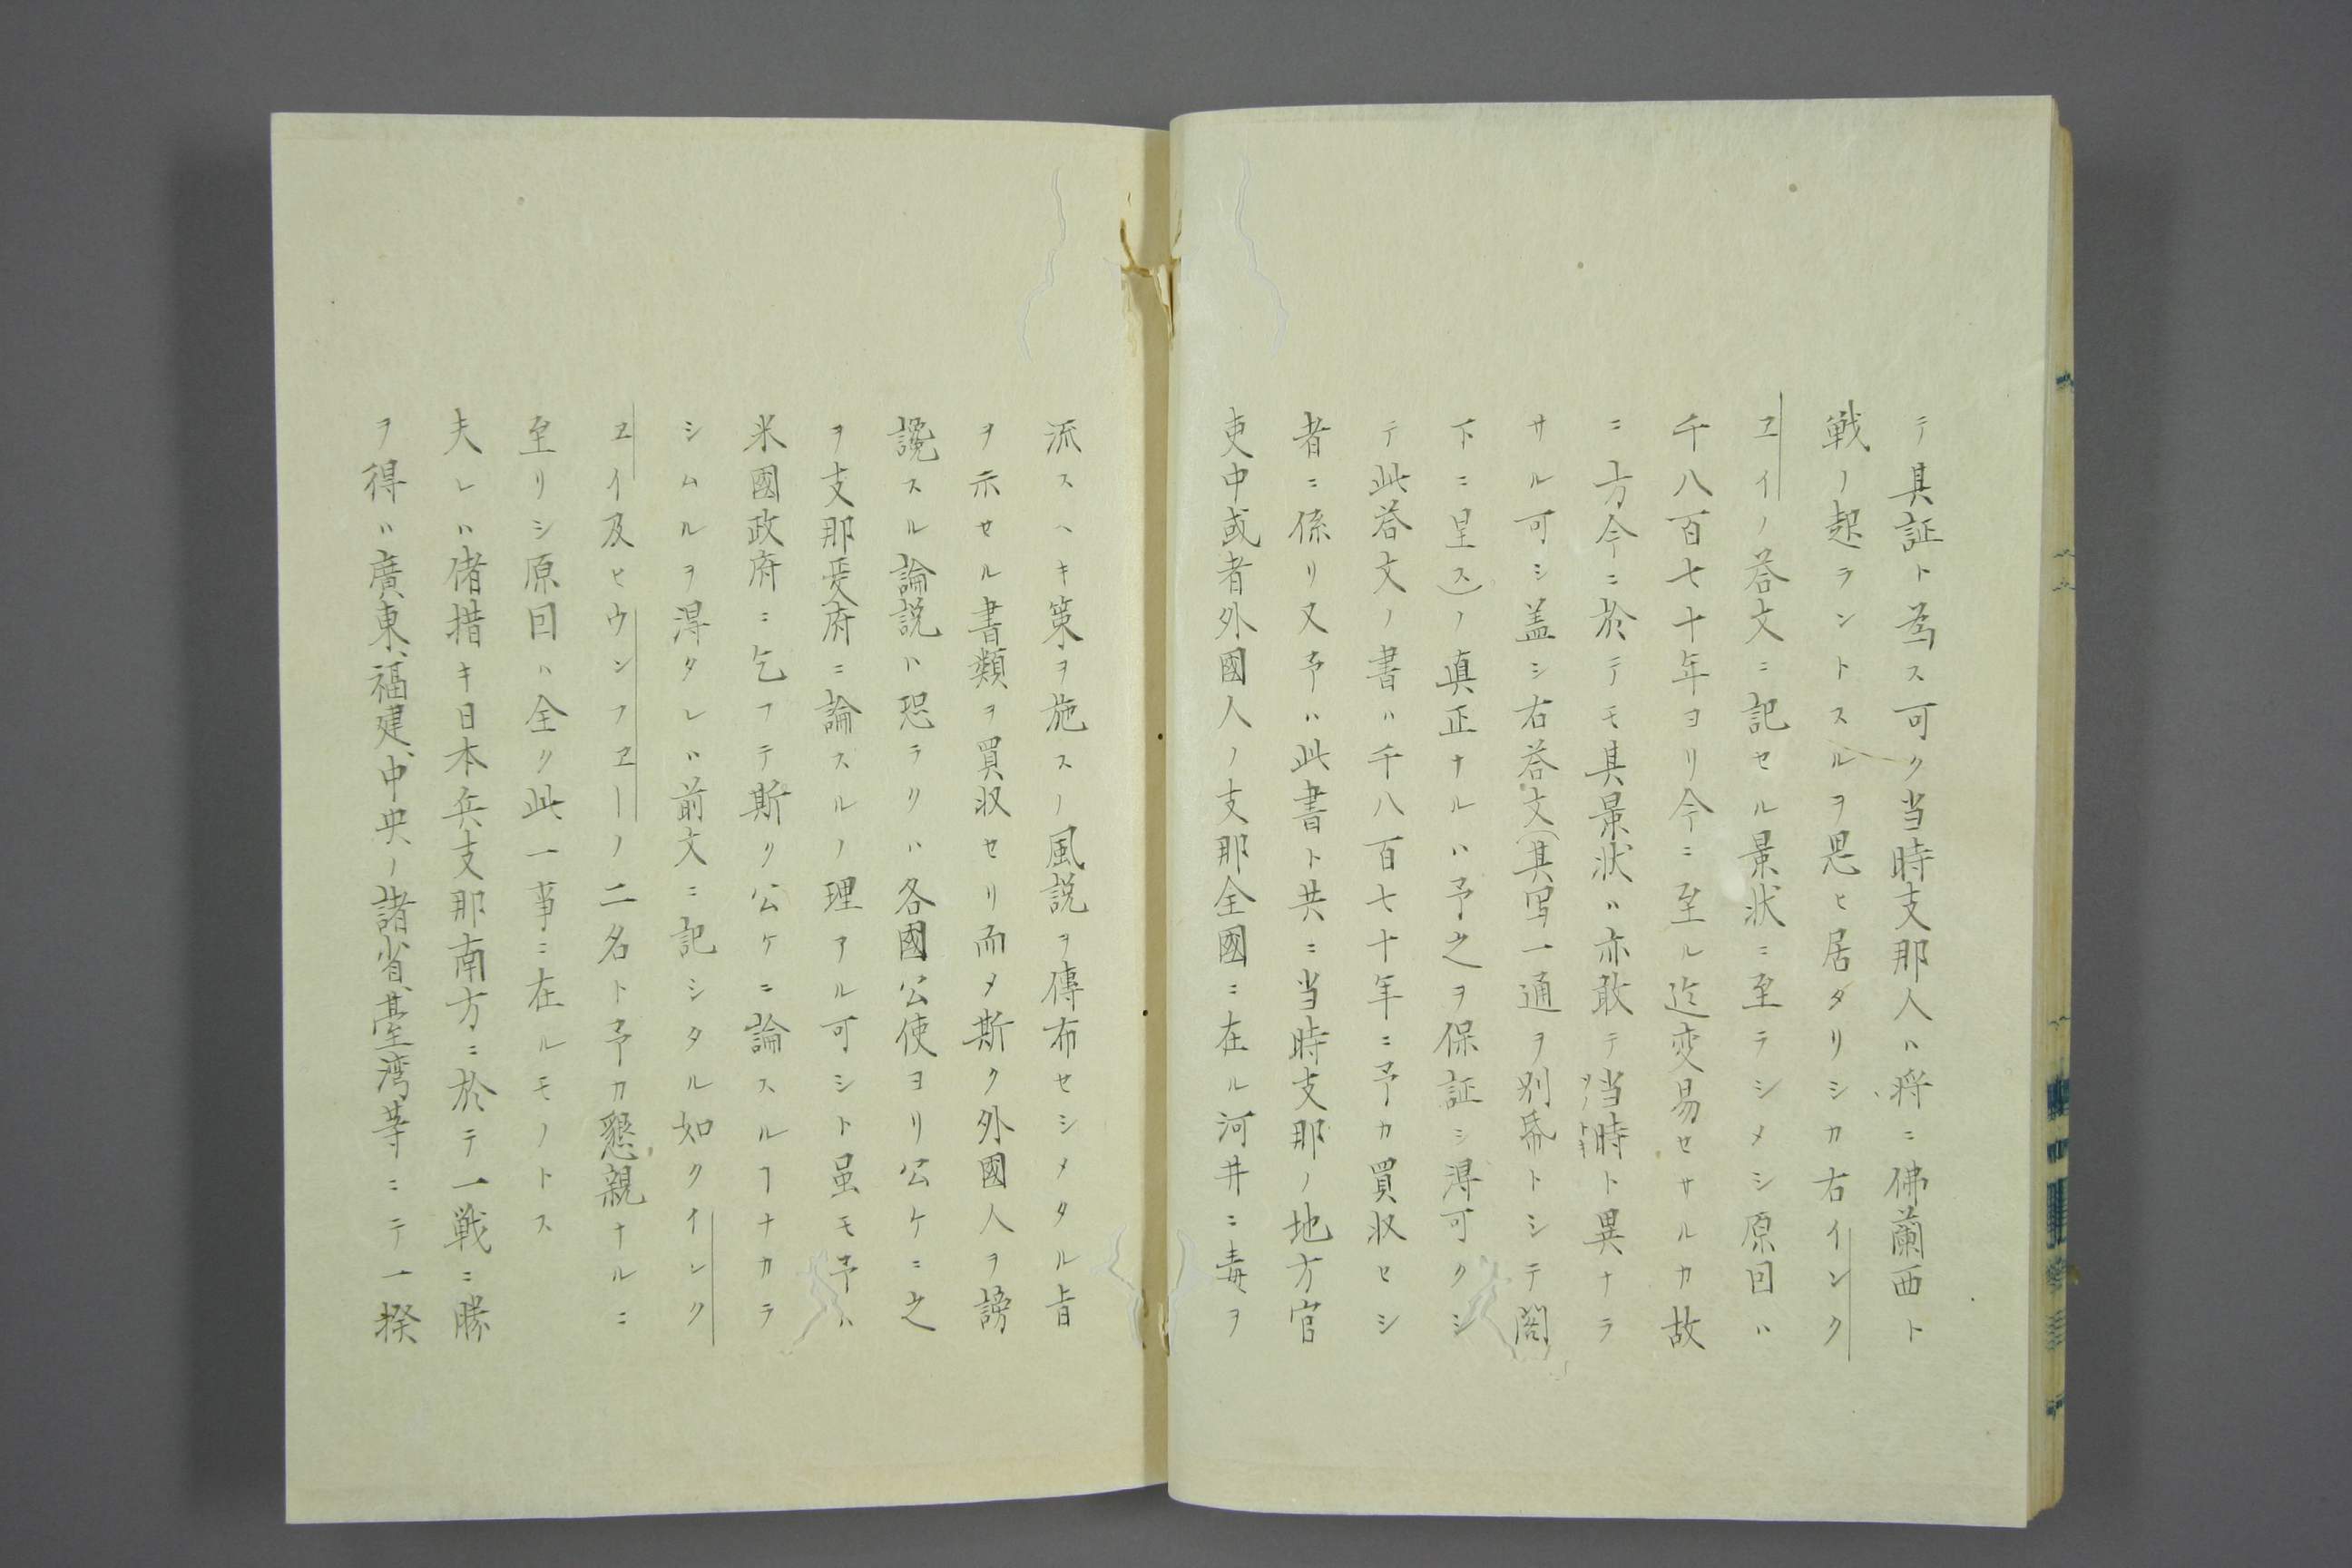 テ其証ト為ス可ク当時支那人ハ将ニ佛蘭西ト
戦ノ起ラントスルヲ思ヒ居タリシカ右インク
ヱイノ荅文ニ記セル景状ニ至ラシメシ原因ハ
千八百七十年ヨリ今ニ至ル迄変易セサルカ故
ニ方今ニ於テモ其景状ハ亦敢テ当時ト異ナラ
サル可シ盖シ右荅文(其写一通ヲ別帋トシテ閣
下ニ呈ス)ノ真正ナルハ予之ヲ保証シ淂可クシ
テ此荅文ノ書ハ千八百七十年ニ予カ買収セシ
者ニ係リ又予ハ此書ト共ニ当時支那ノ地方官
吏中或者外國人ノ支那全國ニ在ル河井ニ毒ヲ
流スヘキ策ヲ施スノ風説ヲ傳布セシメタル旨
ヲ示セル書類ヲ買収セリ而メ斯ク外國人ヲ謗
讒スル論説ハ恐ラクハ各國公使ヨリ公ケニ之
ヲ支那政府ニ論スルノ理アル可シト虽モ予ハ
米國政府ニ乞フテ斯ク公ケニ論スルヿナカラ
シムルヲ淂タレハ前文ニ記シタル如クインク
ヱイ及ヒウンフヱーノ二名ト予カ懇親ナルニ
至リシ原因ハ全ク此一事ニ在ルモノトス
夫レハ偖措キ日本兵支那南方ニ於テ一戦ニ勝
ヲ得ハ廣東、福建、中央ノ諸省、臺湾等ニテ一揆